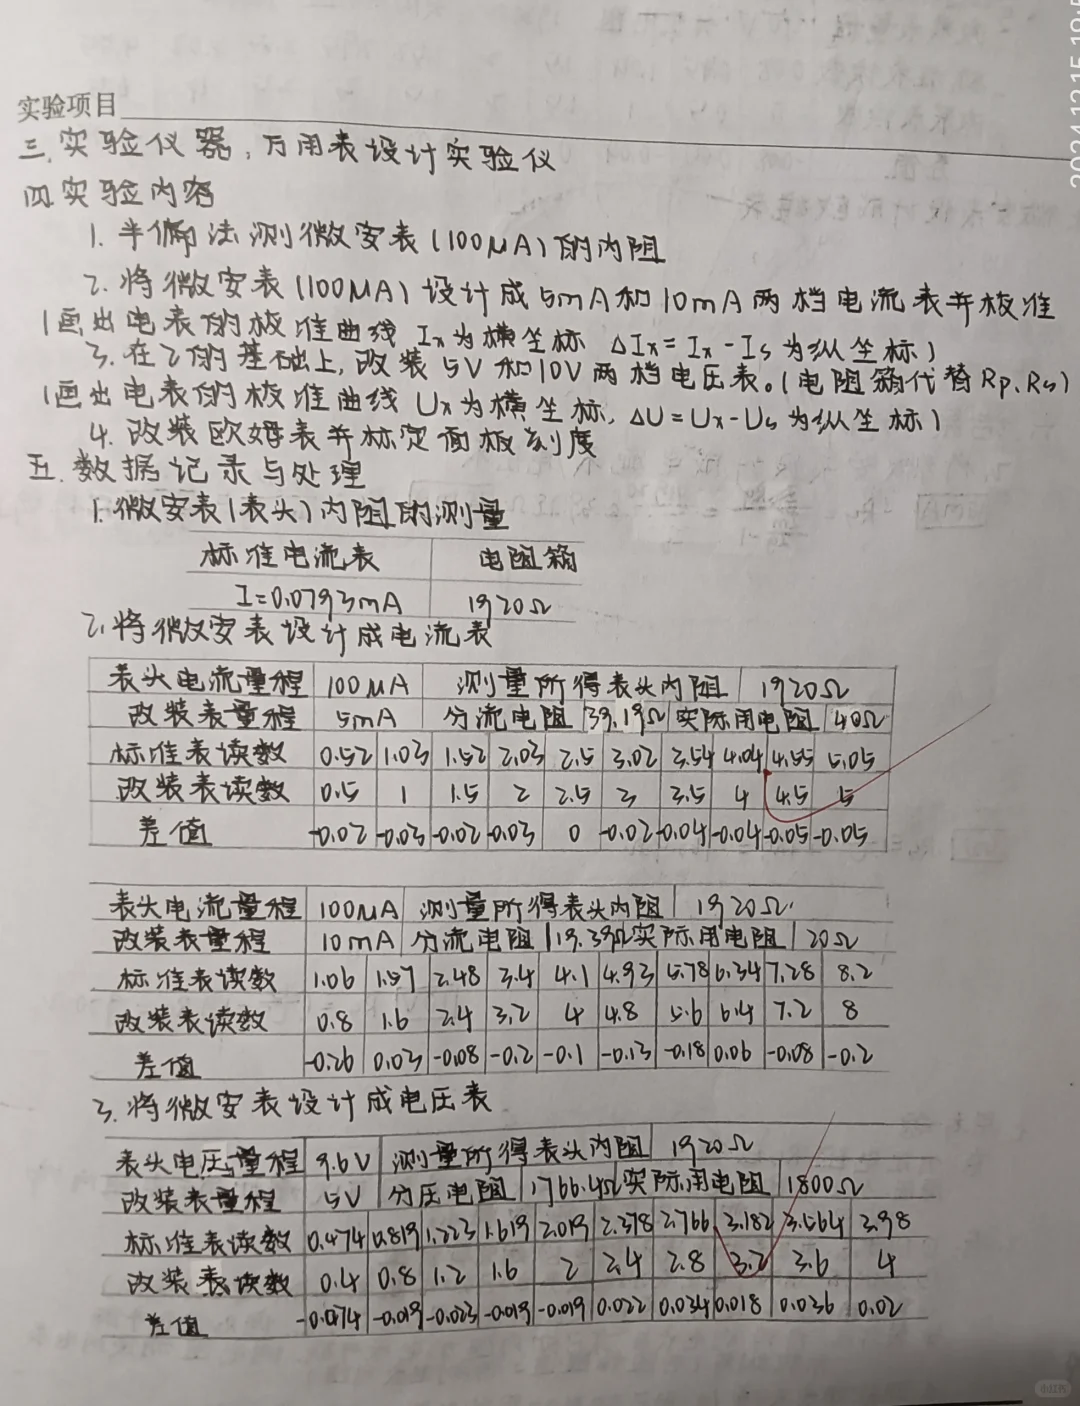 2024.12.15 19:5
实验项目
三.实验仪器:万用表设计实验仪
四.实验内容
1.半偏法测微安表(100μA)的内阻
2.将微安表(100μA)设计成5mA和10mA两档电流表并校准
(画出电表的校准曲线 Ix为横坐标 ΔIx=Ix-Is为纵坐标)
3.在2的基础上,改装5V和10V两档电压表。(电阻箱代替Rp、Rs)
(画出电表的校准曲线 Ux为横坐标,ΔU=Ux-Us为纵坐标)
4.改装欧姆表并标定面板刻度
五.数据记录与处理
1.微安表(表头)内阻的测量
标准电流表 电阻箱
I=0.0793mA 1920Ω
2.将微安表设计成电流表
表头电流量程 100μA 测量所得表头内阻 1920Ω
改装表量程 5mA 分流电阻 39.19Ω 实际用电阻 40Ω
标准表读数 0.52 1.03 1.52 2.03 2.5 3.02 3.54 4.04 4.55 5.05
改装表读数 0.5 1 1.5 2 2.5 3 3.5 4 4.5 5
差值 -0.02 -0.03 -0.02 -0.03 0 -0.02 -0.04 -0.04 -0.05 -0.05
表头电流量程 100μA 测量所得表头内阻 1920Ω
改装表量程 10mA 分流电阻 19.39Ω 实际用电阻 20Ω
标准表读数 1.06 1.57 2.48 3.4 4.1 4.93 5.78 6.34 7.28 8.2
改装表读数 0.8 1.6 2.4 3.2 4 4.8 5.6 6.4 7.2 8
差值 -0.26 0.03 -0.08 -0.2 -0.1 -0.13 -0.18 0.06 -0.08 -0.2
3.将微安表设计成电压表
表头电压量程 9.6V 测量所得表头内阻 1920Ω
改装表量程 5V 分压电阻 1766.4Ω 实际用电阻 1800Ω
标准表读数 0.474 0.819 1.223 1.619 2.019 2.378 2.766 3.182 3.564 3.98
改装表读数 0.4 0.8 1.2 1.6 2 2.4 2.8 3.2 3.6 4
差值 -0.074 -0.019 -0.023 -0.019 -0.019 0.022 0.034 0.018 0.036 0.02
小红书